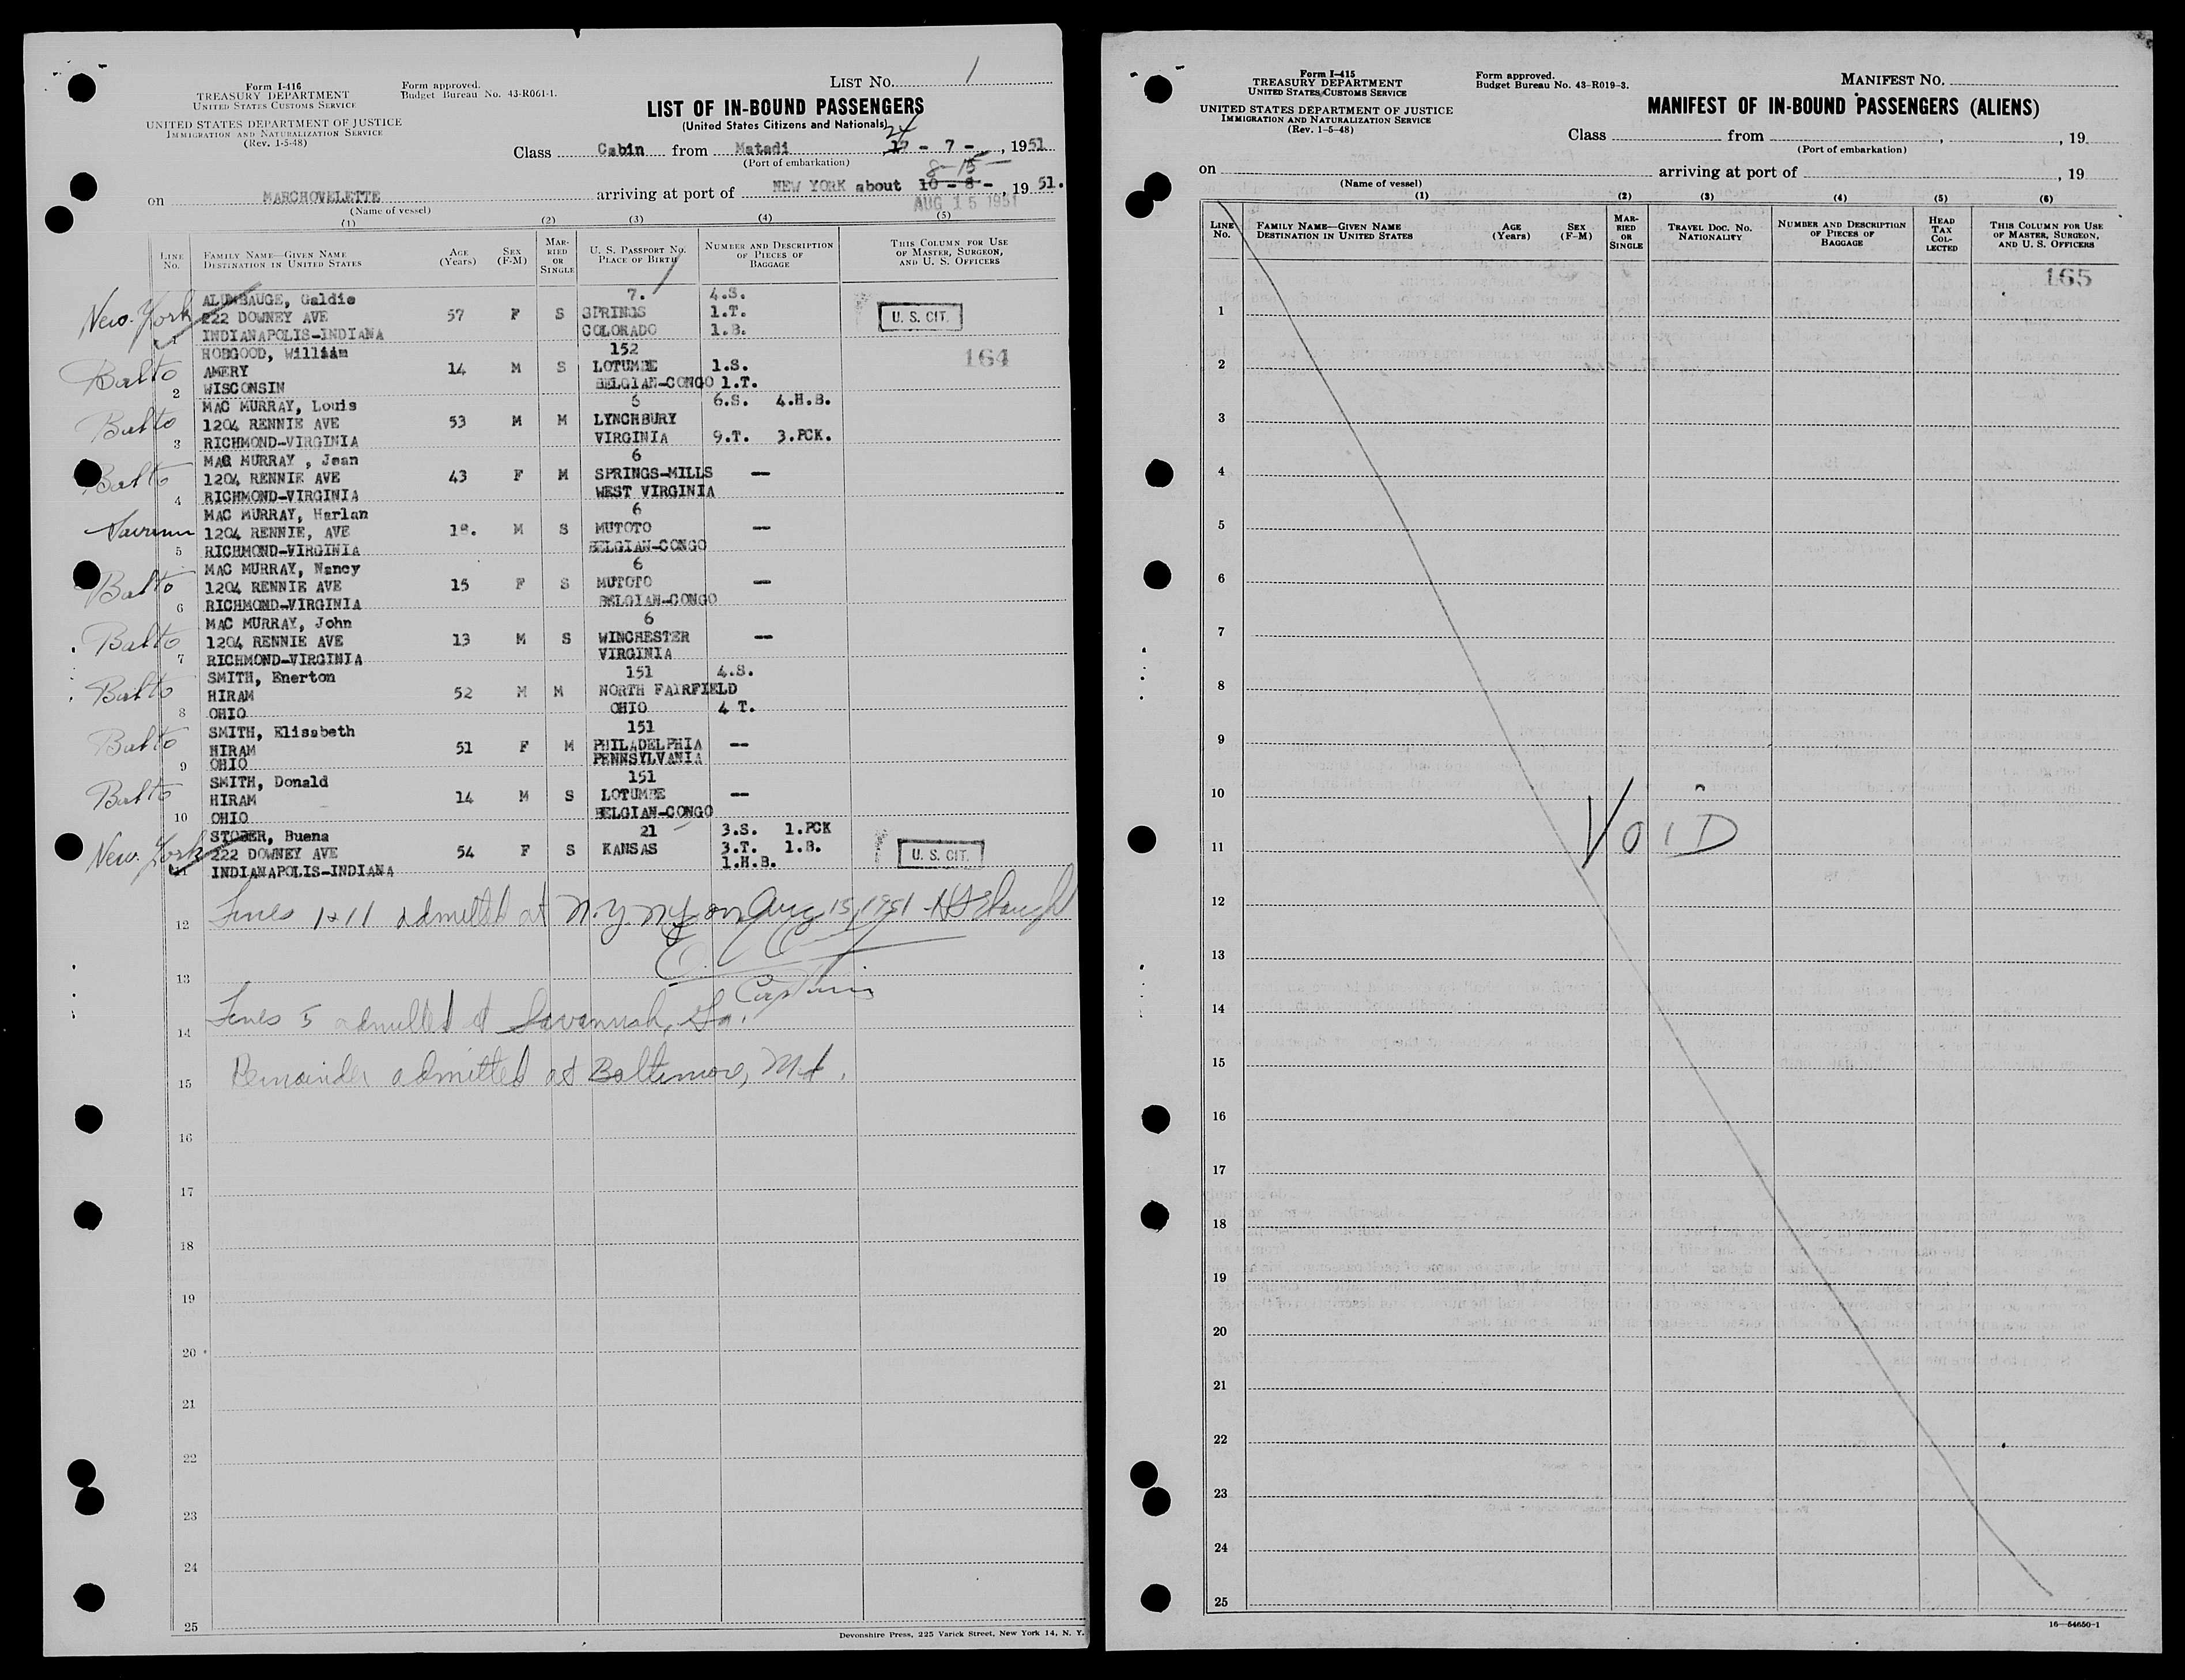 Form I-416
TREASURY DEPARTMENT
UNITED STATES CUSTOMS SERVICE
UNITED STATES DEPARTMENT OF JUSTICE
IMMIGRATION AND NATURALIZATION SERVICE
(Rev. 1-5-48)
Form approved.
Budget Bureau No. 43-R061-1.
LIST NO. 1
LIST OF IN-BOUND PASSENGERS
(United States Citizens and Nationals)
24
Class Cabin from Matadi, 17 - 7 -, 1951
(Port of embarkation)
8-15-
on MARCHOVELETTE arriving at port of NEW YORK about 10 - 8 -, 1951.
(Name of vessel)
AUG 15 1951
(1) (2) (3) (4) (5)
LINE No. FAMILY NAME—GIVEN NAME DESTINATION IN UNITED STATES AGE (Years) SEX (F-M) MARRIED OR SINGLE U. S. PASSPORT NO. PLACE OF BIRTH NUMBER AND DESCRIPTION OF PIECES OF BAGGAGE THIS COLUMN FOR USE OF MASTER, SURGEON, AND U. S. OFFICERS
ALUMBAUGE, Galdie 7. 4.S.
New York 222 DOWNEY AVE 57 F S SPRINGS 1.T. U. S. CIT.
1 INDIANAPOLIS-INDIANA COLORADO 1.B.
HOBGOOD, William 152 164
Balto AMERY 14 M S LOTUMBE 1.S.
2 WISCONSIN BELGIAN-CONGO 1.T.
MAC MURRAY, Louis 6 6.S. 4.H.B.
Balto 1204 RENNIE AVE 53 M M LYNCHBURY
3 RICHMOND-VIRGINIA VIRGINIA 9.T. 3.PCK.
MAC MURRAY , Jean 6
Balto 1204 RENNIE AVE 43 F M SPRINGS-MILLS —
4 RICHMOND-VIRGINIA WEST VIRGINIA
MAC MURRAY, Harlan 6
1204 RENNIE, AVE M S MUTOTO —
5 RICHMOND-VIRGINIA BELGIAN-CONGO
MAC MURRAY, Nancy 6
Balto 1204 RENNIE AVE 15 F S MUTOTO —
6 RICHMOND-VIRGINIA BELGIAN-CONGO
MAC MURRAY, John 6
Balto 1204 RENNIE AVE 13 M S WINCHESTER —
7 RICHMOND-VIRGINIA VIRGINIA
SMITH, Enerton 151 4.S.
Balto HIRAM 52 M M NORTH FAIRFIELD
8 OHIO OHIO 4 T.
SMITH, Elisabeth 151
Balto HIRAM 51 F M PHILADELPHIA —
9 OHIO PENNSYLVANIA
SMITH, Donald 151
Balto HIRAM 14 M S LOTUMBE —
10 OHIO BELGIAN-CONGO
STOBER, Buena 21 3.S. 1.PCK
New York 222 DOWNEY AVE 54 F S KANSAS 3.T. 1.B. U. S. CIT.
11 INDIANAPOLIS-INDIANA 1.H.B.
12 Lines 1 & 11 admitted at N.Y. NY on Aug 15, 1951
13
Captain
14 Lines 5 admitted at Savannah, Ga.
15 Remainder admitted at Baltimore, Md.
16
17
18
19
20
21
22
23
24
25
Devonshire Press, 225 Varick Street, New York 14, N. Y.
Form I-415
TREASURY DEPARTMENT
UNITED STATES CUSTOMS SERVICE
UNITED STATES DEPARTMENT OF JUSTICE
IMMIGRATION AND NATURALIZATION SERVICE
(Rev. 1-5-48)
Form approved.
Budget Bureau No. 43-R019-3.
MANIFEST NO.
MANIFEST OF IN-BOUND PASSENGERS (ALIENS)
Class from , , 19
(Port of embarkation)
on arriving at port of , 19
(Name of vessel)
(1) (2) (3) (4) (5) (6)
LINE No. FAMILY NAME—GIVEN NAME DESTINATION IN UNITED STATES AGE (Years) SEX (F-M) MARRIED OR SINGLE TRAVEL DOC. NO. NATIONALITY NUMBER AND DESCRIPTION OF PIECES OF BAGGAGE HEAD TAX COLLECTED THIS COLUMN FOR USE OF MASTER, SURGEON, AND U. S. OFFICERS
165
1
2
3
4
5
6
7
8
9
10
VOID
11
12
13
14
15
16
17
18
19
20
21
22
23
24
25
16—54650-1